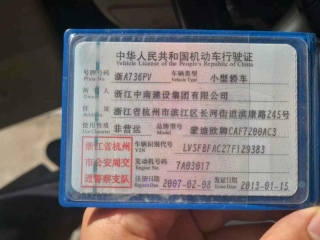 中华人民共和国机动车行驶证
Vehicle License of the People's Republic of China
号牌号码 浙A736PV 车辆类型 小型轿车
Plate No. Vehicle Type
所有人 浙江中南建设集团有限公司
Owner
住址 浙江省杭州市滨江区长河街道滨康路245号
Address
使用性质 非营运 品牌型号 蒙迪欧牌CAF7200AC3
Use Character Model
浙江省杭州 车辆识别代号 LVSFBFAC27F129383
VIN
市公安局交 发动机号码 7A03017
Engine No.
通警察支队 注册日期 2007-02-08 发证日期 2013-01-15
Register Date Issue Date